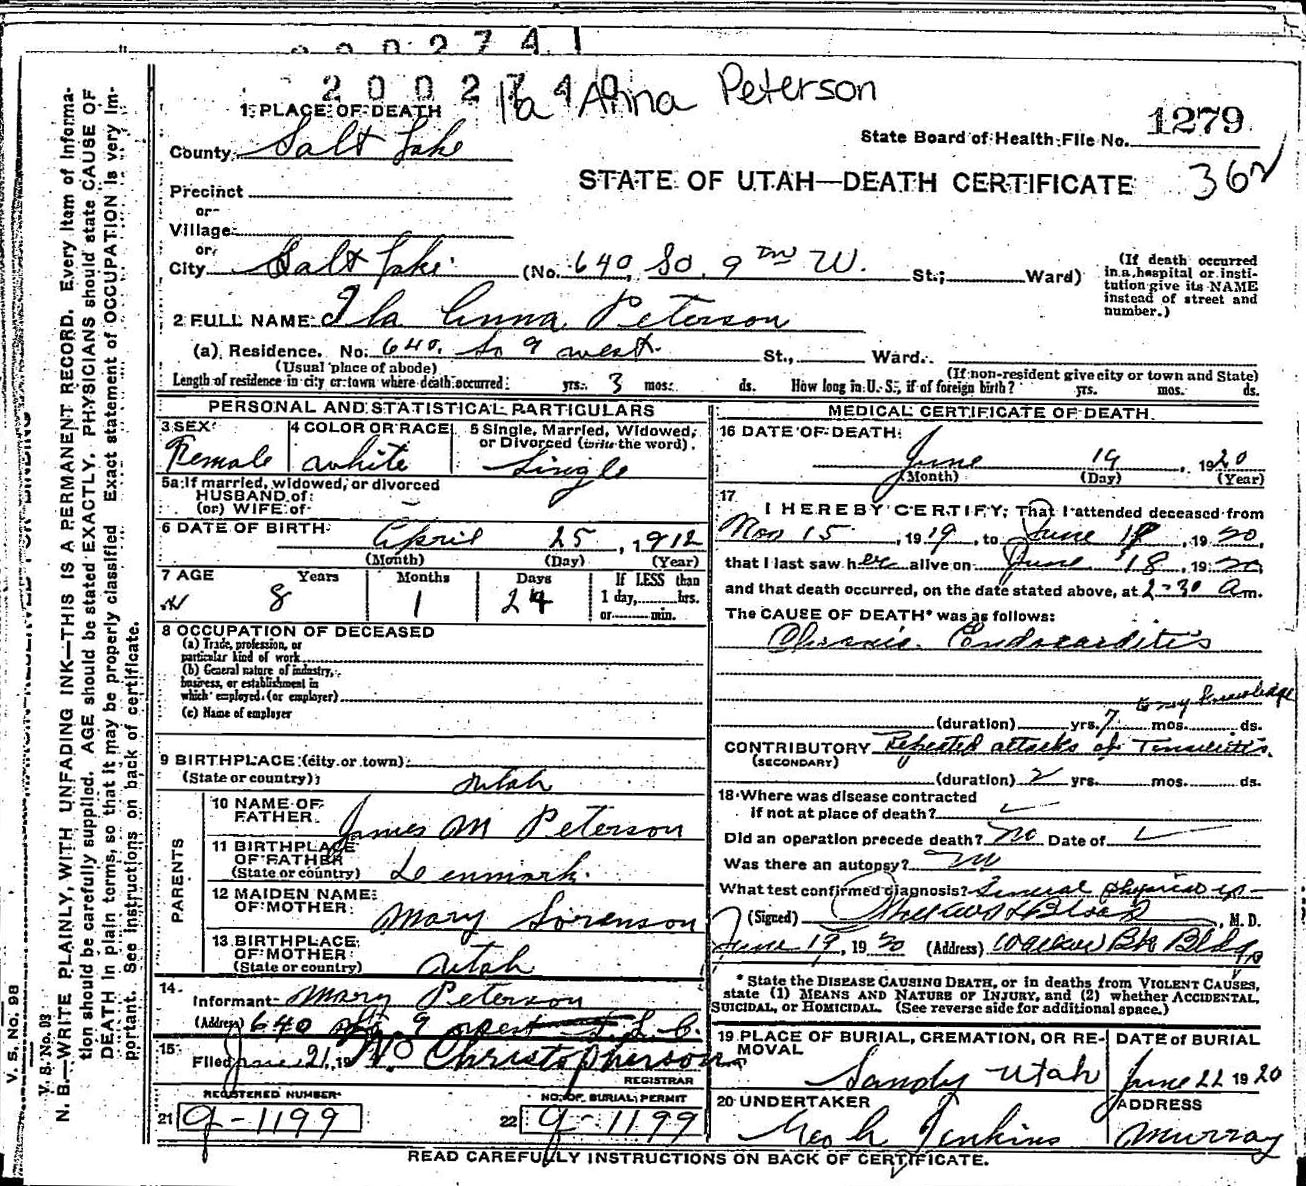 2002741
2002740
Ila Anna Peterson
1. PLACE OF DEATH
State Board of Health File No. 1279
County Salt Lake
STATE OF UTAH—DEATH CERTIFICATE
362
Precinct
or
Village
or
City Salt Lake (No. 640 So. 9 W. St.; Ward)
(If death occurred in a hospital or institution give its NAME instead of street and number.)
2 FULL NAME Ila Anna Peterson
(a) Residence. No. 640 So 9 west St., Ward.
(Usual place of abode) (If non-resident give city or town and State)
Length of residence in city or town where death occurred: yrs. 3 mos. ds. How long in U. S., if of foreign birth? yrs. mos. ds.
PERSONAL AND STATISTICAL PARTICULARS
3 SEX Female
4 COLOR OR RACE white
5 Single, Married, Widowed, or Divorced (write the word). Single
5a If married, widowed, or divorced
HUSBAND of
(or) WIFE of
6 DATE OF BIRTH April 25, 1912
(Month) (Day) (Year)
7 AGE Years Months Days If LESS than
8 1 24 1 day, hrs.
or min.
8 OCCUPATION OF DECEASED
(a) Trade, profession, or
particular kind of work
(b) General nature of industry,
business, or establishment in
which employed (or employer)
(c) Name of employer
9 BIRTHPLACE (city or town)
(State or country) Utah
PARENTS
10 NAME OF FATHER James M Peterson
11 BIRTHPLACE OF FATHER (State or country) Denmark.
12 MAIDEN NAME OF MOTHER Mary Sorenson
13 BIRTHPLACE OF MOTHER (State or country) Utah
14. Informant Mary Peterson
(Address) 640 So 9 west S. L. C.
15 Filed June 21, 19 Christopherson
REGISTRAR
REGISTERED NUMBER NO. OF BURIAL PERMIT
21 9-1199 22 9-1199
MEDICAL CERTIFICATE OF DEATH.
16 DATE OF DEATH
June 19, 1920
(Month) (Day) (Year)
17 I HEREBY CERTIFY, That I attended deceased from
Nov 15, 1919, to June 18, 1920,
that I last saw her alive on June 18, 1920,
and that death occurred, on the date stated above, at 2-30 a m.
The CAUSE OF DEATH* was as follows:
Chronic Endocarditis
to my knowledge
(duration) yrs. 7 mos. ds.
CONTRIBUTORY Repeated attacks of Tonsilitis
(SECONDARY)
(duration) 2 yrs. mos. ds.
18 Where was disease contracted
if not at place of death?
Did an operation precede death? no Date of
Was there an autopsy? no
What test confirmed diagnosis? General physical
(Signed) , M. D.
June 19, 1920 (Address) Walker Bk Bldg
* State the DISEASE CAUSING DEATH, or in deaths from VIOLENT CAUSES,
state (1) MEANS AND NATURE OF INJURY, and (2) whether ACCIDENTAL,
SUICIDAL, or HOMICIDAL. (See reverse side for additional space.)
19 PLACE OF BURIAL, CREMATION, OR REMOVAL Sandy Utah
DATE of BURIAL June 22 1920
20 UNDERTAKER Jenkins
ADDRESS Murray
READ CAREFULLY INSTRUCTIONS ON BACK OF CERTIFICATE.
V. S. No. 98
V. S. No. 93
N. B.—WRITE PLAINLY, WITH UNFADING INK—THIS IS A PERMANENT RECORD. Every item of informa-
tion should be carefully supplied. AGE should be stated EXACTLY. PHYSICIANS should state CAUSE OF
DEATH in plain terms, so that it may be properly classified. Exact statement of OCCUPATION is very im-
portant. See instructions on back of certificate.